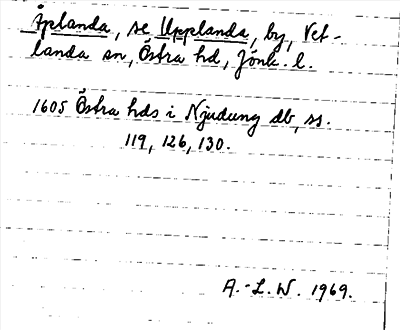 Åplanda, se Upplanda, by, Vet-
landa sn, Östra hd, Jönk. l.
1605 Östra hds i Njudung db, ss.
119, 126, 130.
A.-L. W. 1969.